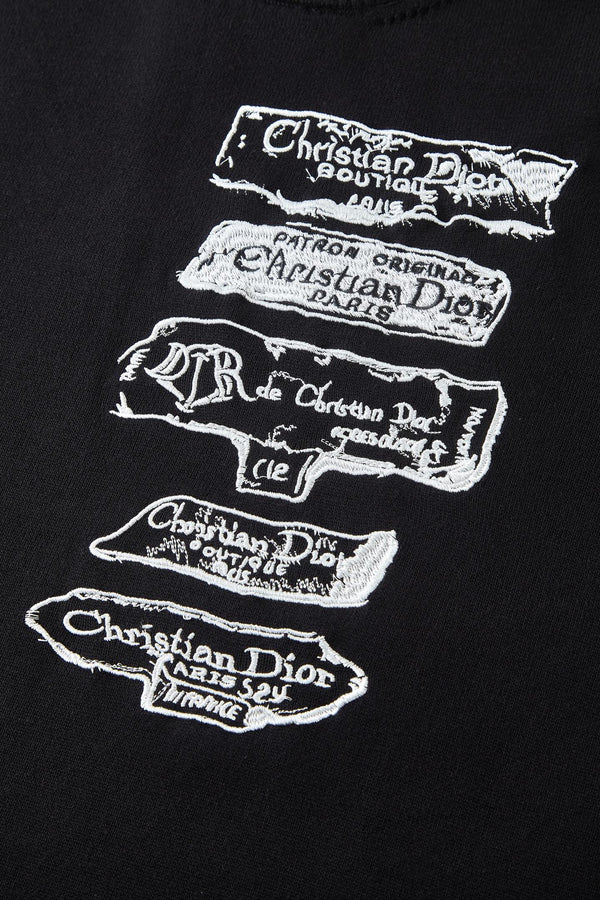 Christian Dior
BOUTIQUE
PARIS
PATRON ORIGINAL
Christian Dior
PARIS
de Christian Dior
CIE
Christian Dior
BOUTIQUE
Christian Dior
PARIS S24